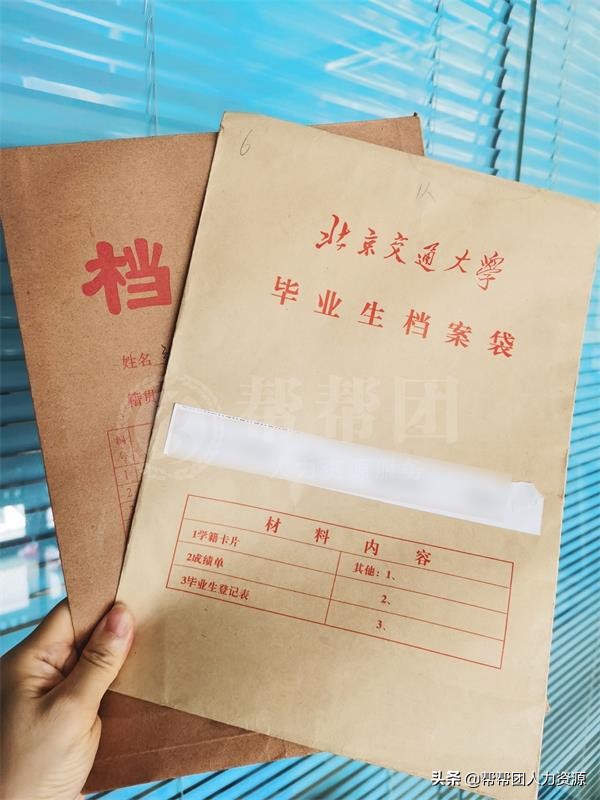 6
北京交通大学
毕业生档案袋
档
姓名
籍贯
帮帮团
材料内容
1学籍卡片
2成绩单
3毕业生登记表
其他：1、
2、
3、
头条 @帮帮团人力资源